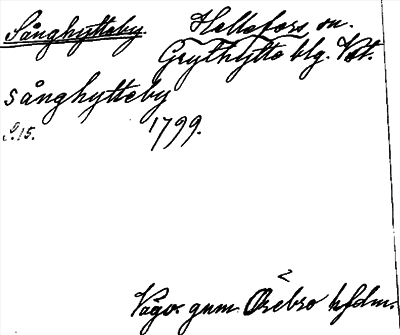 Sånghytteby. Hellefors sn.
Grythytte blg. Vst.
sånghytteby
S. 15. 1799.
Vägv. gnm Örebro hfdm.